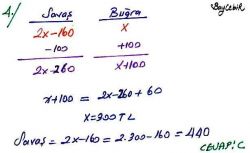 4.) Savaş Buğra Bay Cebir
2x-160 x
-100 +100
2x-260 x+100
x+100 = 2x-260+60
x=300 TL
Savaş = 2x-160 = 2.300-160 = 440
CEVAP: C